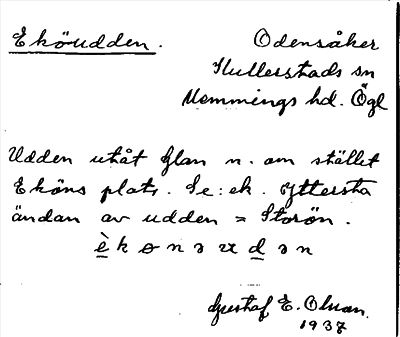 Eköudden.
Odensåker
Kullerstads sn
Memmings hd. Ögl
Udden utåt Glan n. om stället
Eköns plats. Se: ek. Yttersta
ändan av udden = Storön.
è k ø n ə u d ə n
Gustaf E. Olsson.
1937